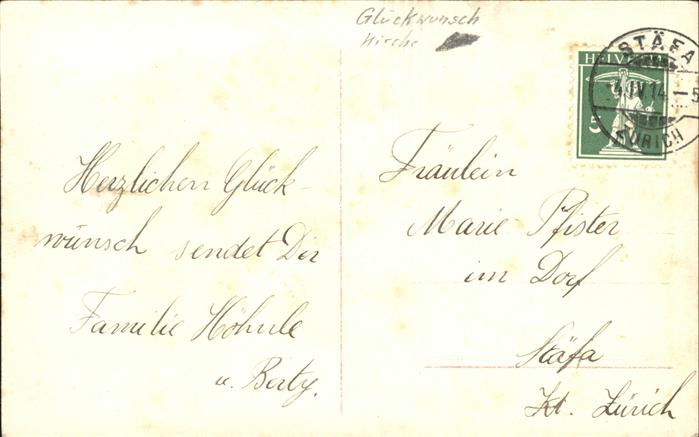 Glückwunsch
Kirche
STÄFA
HELVE
4.IV.14 – 5
5
ZÜRICH
Herzlichen Glück-
wünsch sendet Dir
Familie Höhnle
u. Berty.
Fräulein
Marie Pfister
im Dorf
Stäfa
Kt. Zürich